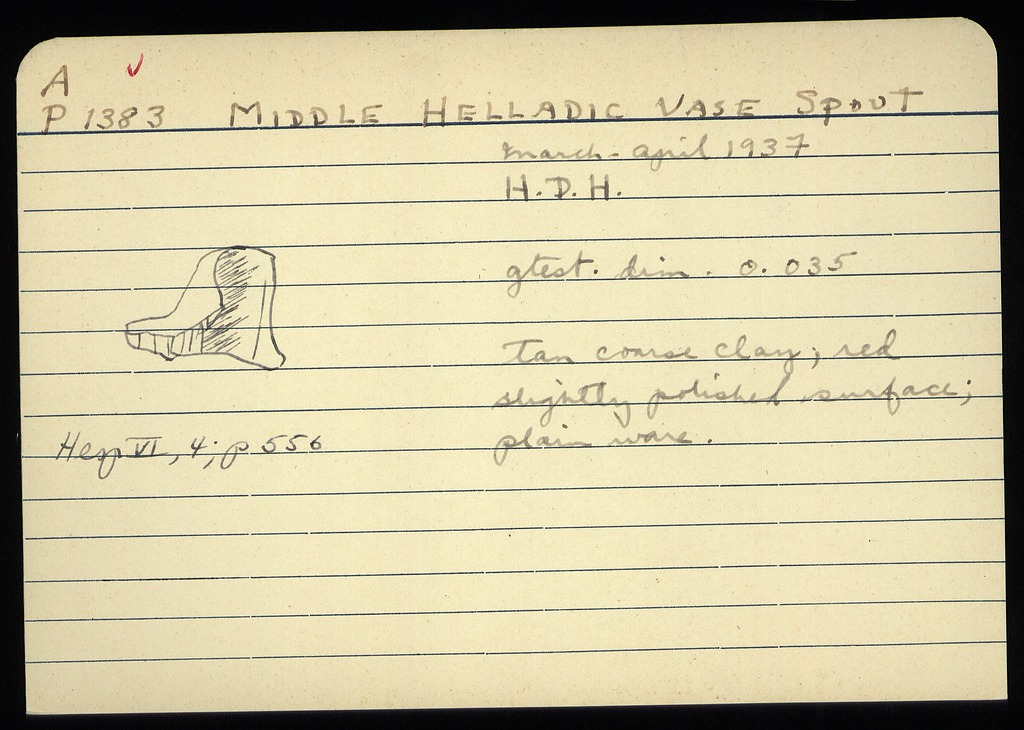 A
P 1383 MIDDLE HELLADIC VASE SPOUT
March - April 1937
H.D.H.
gtest. dim. 0.035
tan coarse clay; red
slightly polished surface;
plain ware.
Hesp VI, 4; p 556